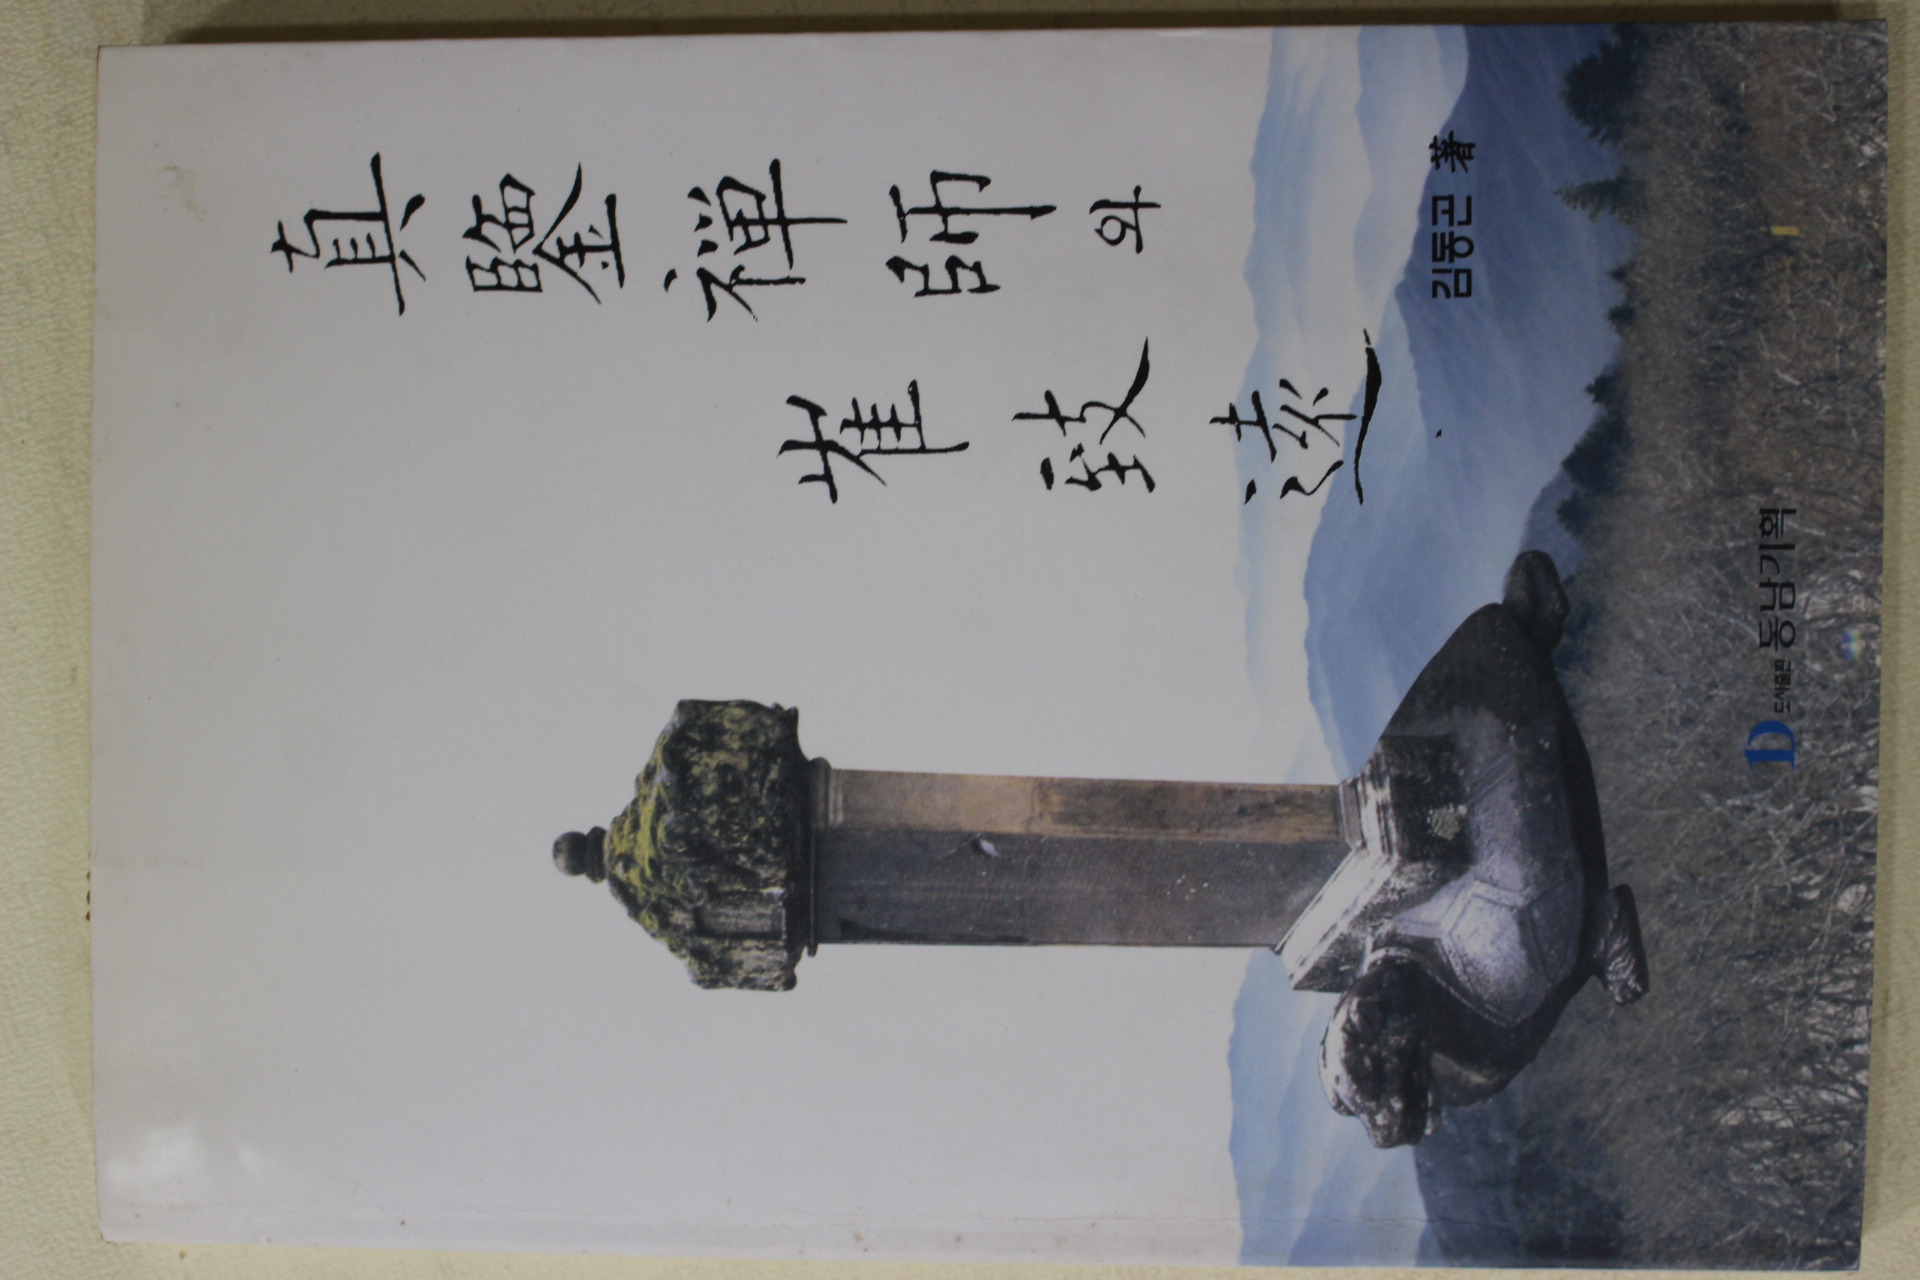 眞鑒禪師와
崔致遠
김동곤 著
D 도서출판 동남기획